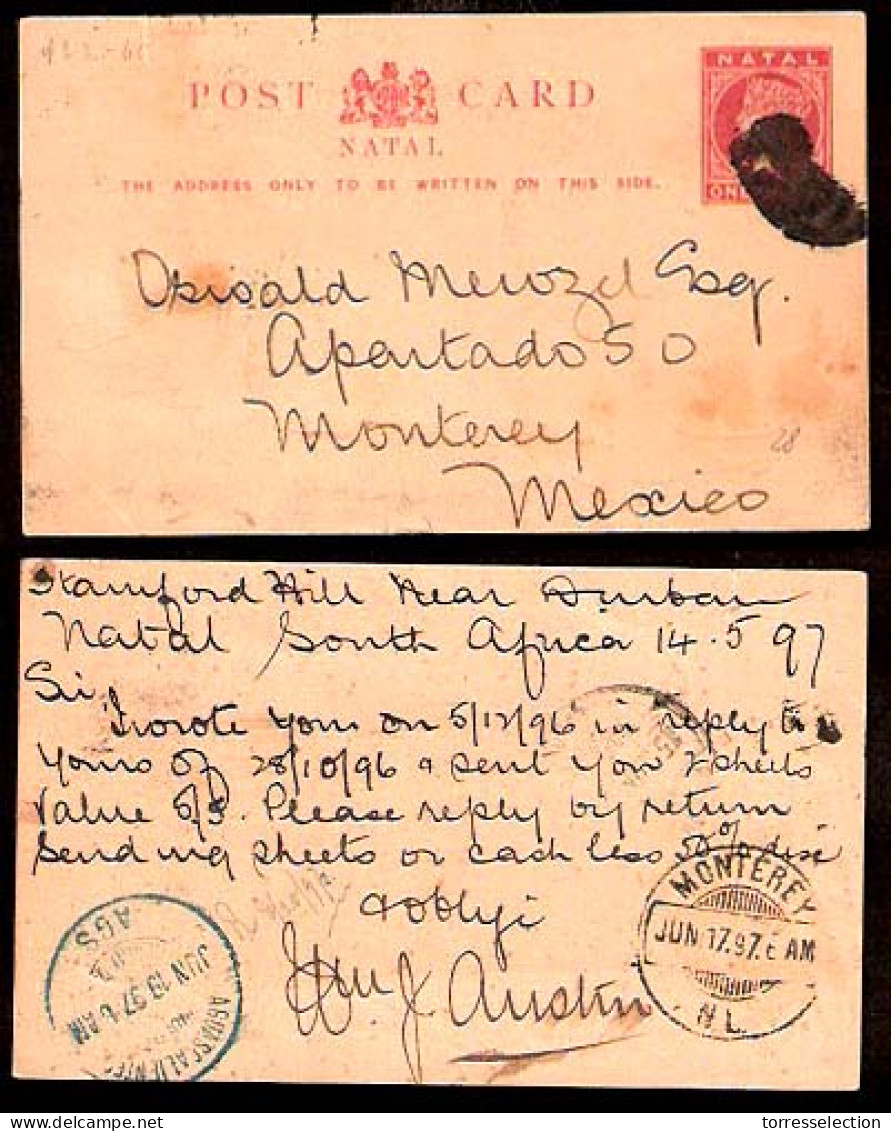 NATAL
POST CARD
NATAL
THE ADDRESS ONLY TO BE WRITTEN ON THIS SIDE.
ON
Oswald Esq.
Apartado 50
Monterey
Mexico
28
Stamford Hill Near Durban
Natal South Africa 14.5 97
Sir,
I wrote you on 5/12/96 in reply to
yours of 28/10/96 & sent you 2 sheets
value 5/3. Please reply by return
sending sheets or cash less 50% disc
& oblige
Wm J. Austin
MONTEREY
JUN 17.97. 6 AM
N L.
AGUASCALIENTES
JUN 19 97 AM
AGS
torresselection